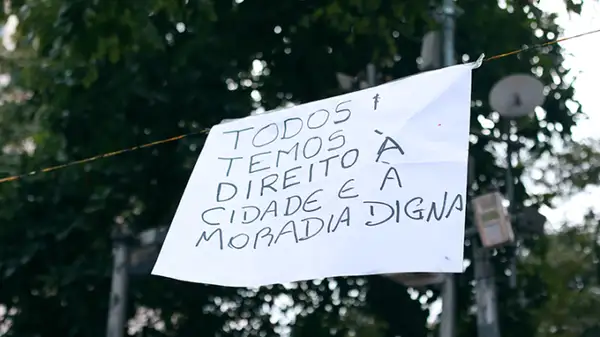 TODOS
TEMOS
DIREITO À
CIDADE E À
MORADIA DIGNA